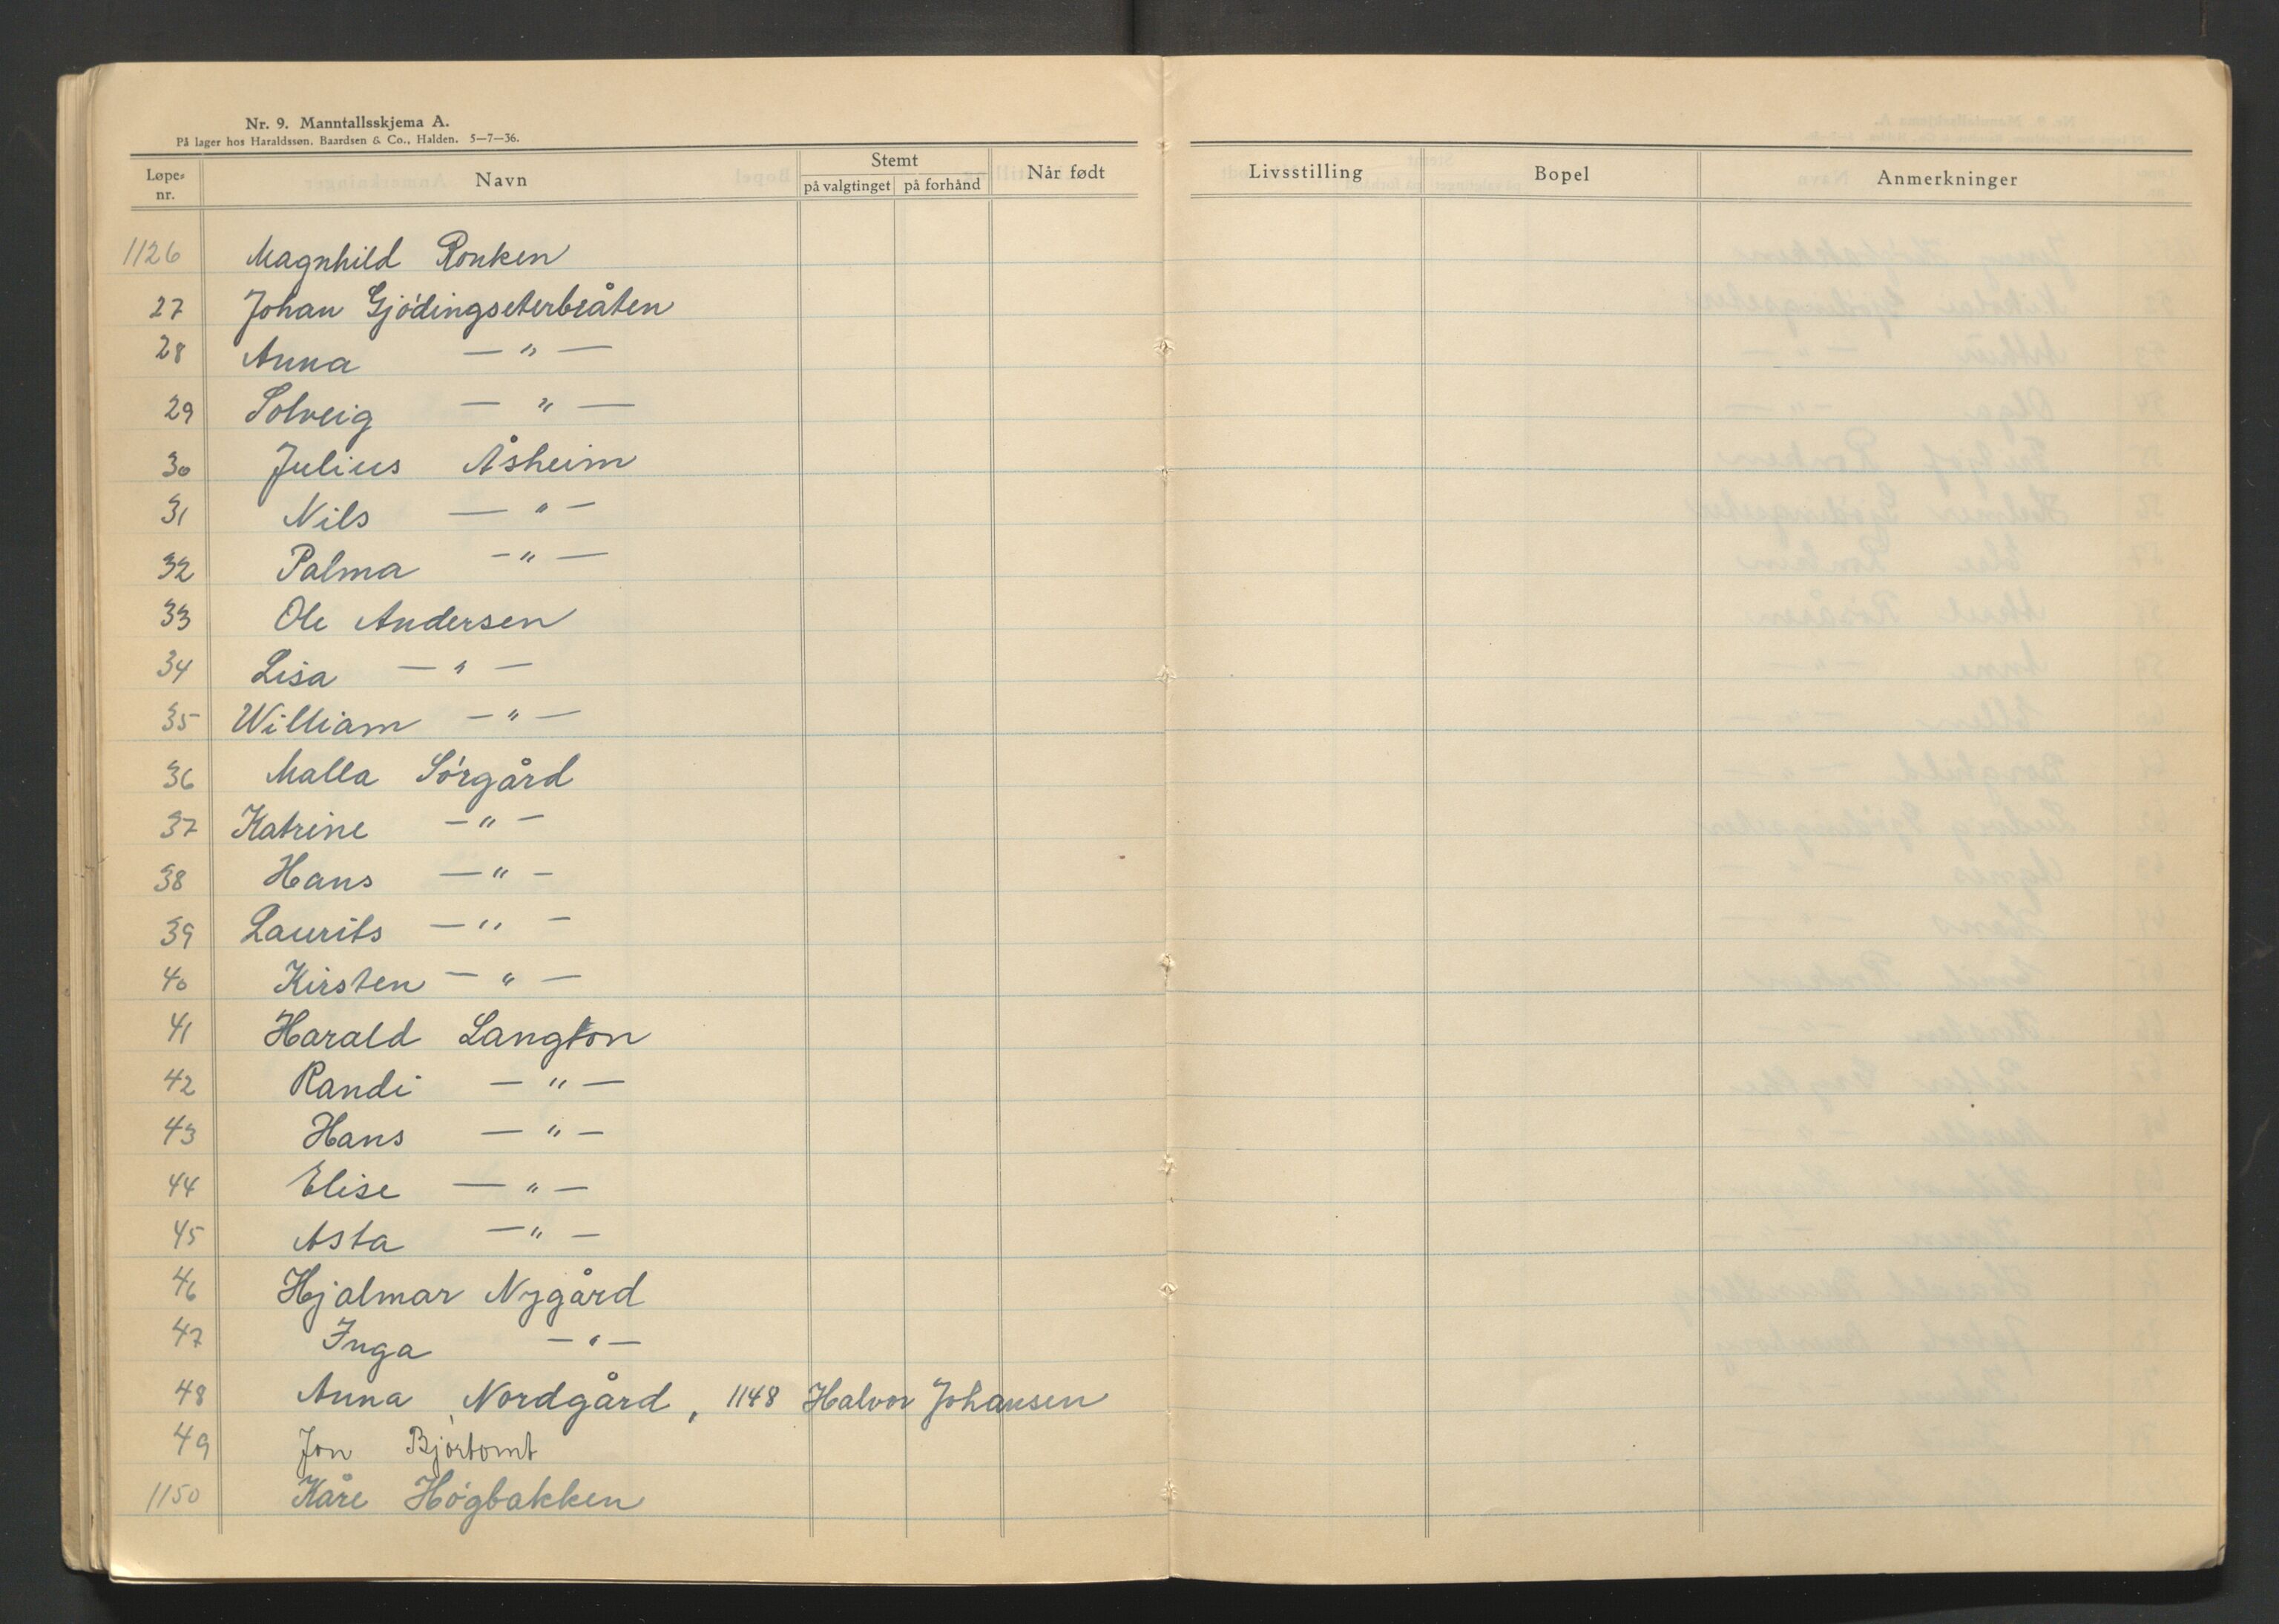 Nr. 9. Manntallsskjema A.
På lager hos Haraldssøn, Baardsen & Co., Halden. 5—7—36.
Løpe-nr. Navn Stemt på valgtinget på forhånd Når født Livsstilling Bopel Anmerkninger
1126 Magnhild Ronken
27 Johan Gjödingseterbråten
28 Anna — " —
29 Solveig — " —
30 Julius Åsheim
31 Nils — " —
32 Palma — " —
33 Ole Andersen
34 Lisa — " —
35 William — " —
36 Malla Sörgård
37 Katrine — " —
38 Hans — " —
39 Laurits — " —
40 Kirsten — " —
41 Harald Langton
42 Randi — " —
43 Hans — " —
44 Elise — " —
45 Asta — " —
46 Hjalmar Nygård
47 Inga — " —
48 Anna Nordgård, 1148 Halvor Johansen
49 Jon Björtomt
1150 Kåre Högbakken